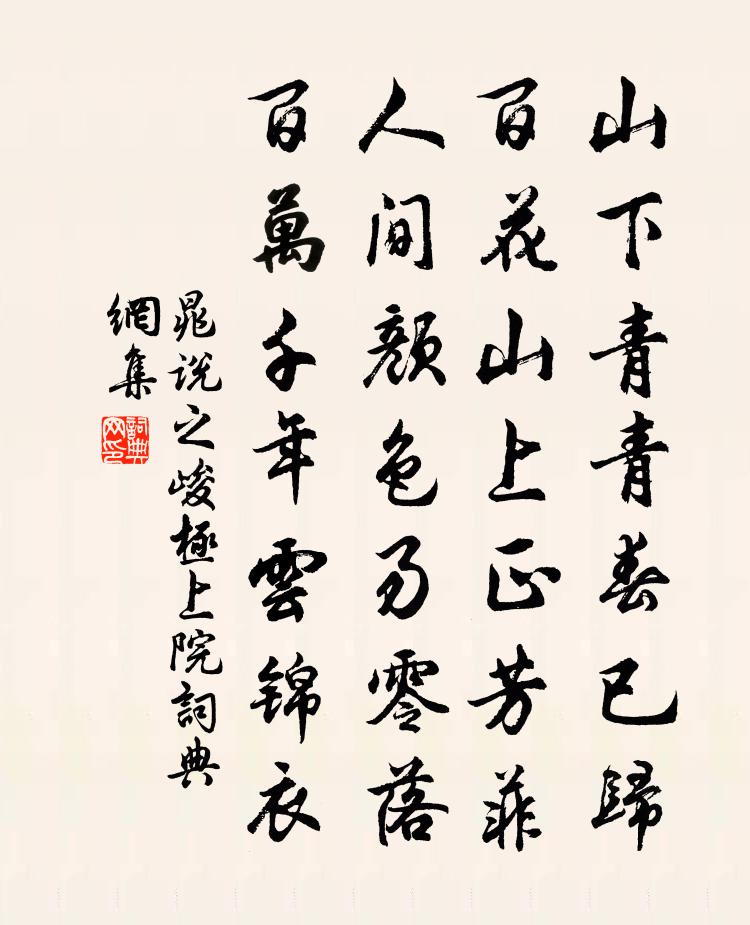 山下青青春已歸
百花山上正芳菲
人間顏色易零落
百萬千年雲錦衣
晁說之峻極上院詞典
網集
詞典
网印